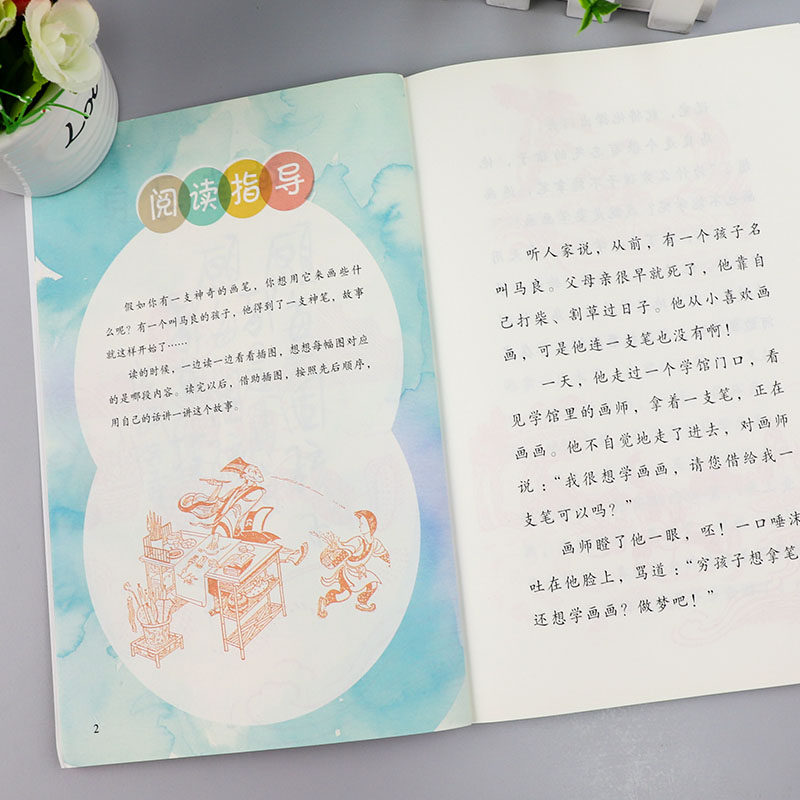 阅读指导
假如你有一支神奇的画笔，你想用它来画些什
么呢？有一个叫马良的孩子，他得到了一支神笔，故事
就这样开始了……
读的时候，一边读一边看看插图，想想每幅图对应
的是哪段内容。读完以后，借助插图，按照先后顺序，
用自己的话讲一讲这个故事。
2
听人家说，从前，有一个孩子名
叫马良。父母亲很早就死了，他靠自
己打柴、割草过日子。他从小喜欢画
画，可是他连一支笔也没有啊！
一天，他走过一个学馆门口，看
见学馆里的画师，拿着一支笔，正在
画画。他不自觉地走了进去，对画师
说：“我很想学画画，请您借给我一
支笔可以吗？”
画师瞪了他一眼，呸！一口唾沫
吐在他脸上，骂道：“穷孩子想拿笔
还想学画画？做梦吧！”